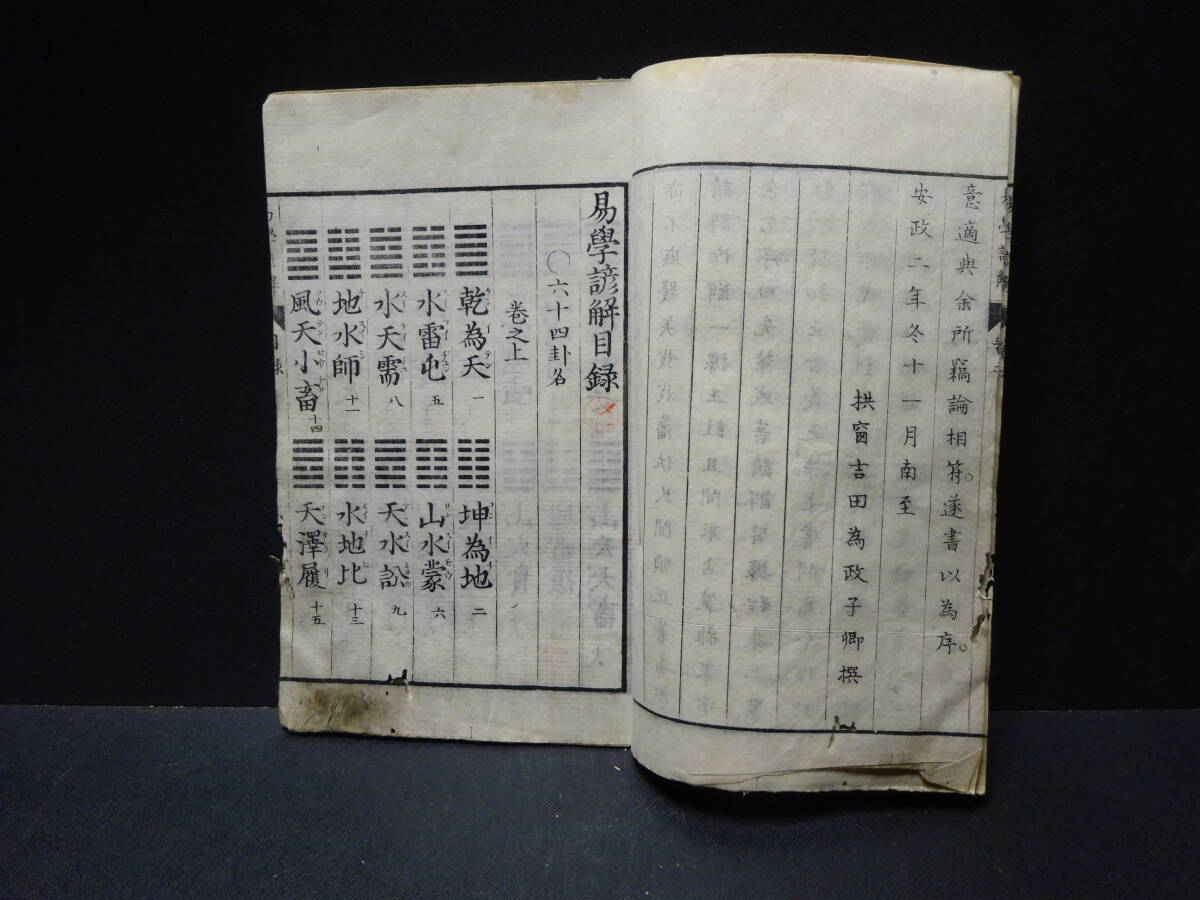 意適與余所竊論相符。遂書以為序。
安政二年冬十一月南至
拱窗吉田為政子卿撰
易學諺解目録
〇六十四卦名
卷之上
乾為天 一
坤為地 二
水雷屯 五
山水蒙 六
水天需 八
天水訟 九
地水師 十一
水地比 十三
風天小畜 十四
天澤履 十五